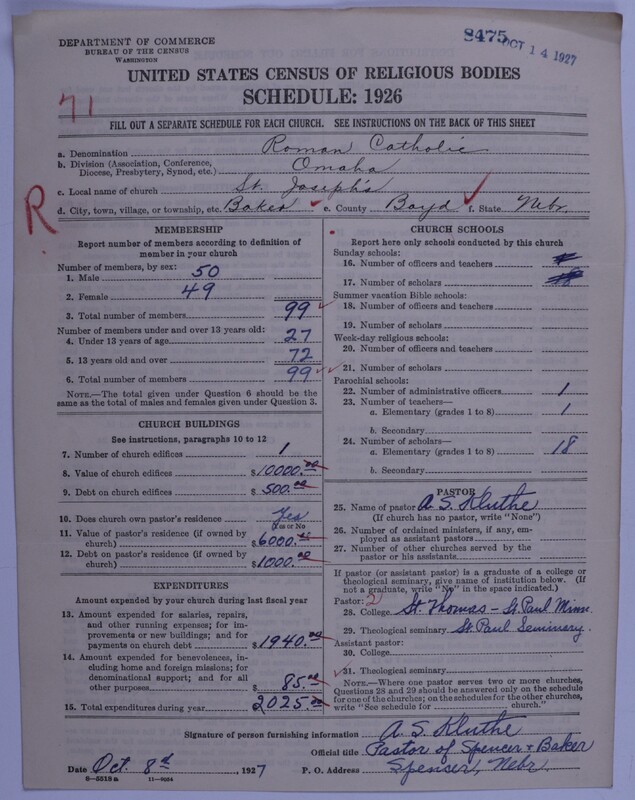 DEPARTMENT OF COMMERCE
BUREAU OF THE CENSUS
WASHINGTON
8475 OCT 14 1927
UNITED STATES CENSUS OF RELIGIOUS BODIES
SCHEDULE: 1926
71
FILL OUT A SEPARATE SCHEDULE FOR EACH CHURCH. SEE INSTRUCTIONS ON THE BACK OF THIS SHEET
a. Denomination Roman Catholic
b. Division (Association, Conference, Diocese, Presbytery, Synod, etc.) Omaha
c. Local name of church St. Joseph's
R
d. City, town, village, or township, etc. Baker e. County Boyd f. State Nebr.
MEMBERSHIP
Report number of members according to definition of
member in your church
Number of members, by sex:
1. Male 50
2. Female 49
3. Total number of members 99
Number of members under and over 13 years old:
4. Under 13 years of age 27
5. 13 years old and over 72
6. Total number of members 99
NOTE.—The total given under Question 6 should be
same as the total of males and females given under Question 3.
CHURCH BUILDINGS
See instructions, paragraphs 10 to 12
7. Number of church edifices 1
8. Value of church edifices $10000.00
9. Debt on church edifices $500.00
10. Does church own pastor's residence Yes
(Yes or No
11. Value of pastor's residence (if owned by
church) $6000.00
12. Debt on pastor's residence (if owned by
church) $1000.00
EXPENDITURES
Amount expended by your church during last fiscal year
13. Amount expended for salaries, repairs,
and other running expenses; for im-
provements or new buildings; and for
payments on church debt $1940.00
14. Amount expended for benevolences, in-
cluding home and foreign missions; for
denominational support; and for all
other purposes $85.00
15. Total expenditures during year 2025.00
CHURCH SCHOOLS
Report here only schools conducted by this church
Sunday schools:
16. Number of officers and teachers
17. Number of scholars
Summer vacation Bible schools:
18. Number of officers and teachers
19. Number of scholars
Week-day religious schools:
20. Number of officers and teachers
21. Number of scholars
Parochial schools:
22. Number of administrative officers 1
23. Number of teachers—
a. Elementary (grades 1 to 8) 1
b. Secondary
24. Number of scholars—
a. Elementary (grades 1 to 8) 18
b. Secondary
PASTOR
25. Name of pastor A. S. Kluthe
(If church has no pastor, write "None")
26. Number of ordained ministers, if any, em-
ployed as assistant pastors
27. Number of other churches served by the
pastor or his assistants
If pastor (or assistant pastor) is a graduate of a college or
theological seminary, give name of institution below. (If
not a graduate, write "No" in the space indicated.)
Pastor: 2
28. College St. Thomas – St. Paul Minn.
29. Theological seminary St. Paul Seminary.
Assistant pastor:
30. College
31. Theological seminary
NOTE.—Where one pastor serves two or more churches,
Questions 28 and 29 should be answered only on the schedule
for one of the churches; on the schedules for the other churches,
write "See schedule for church."
Signature of person furnishing information A. S. Kluthe
Official title Pastor of Spencer + Baker
Date Oct. 8th, 1927 P. O. Address Spencer, Nebr.
8-5518a 11-9024